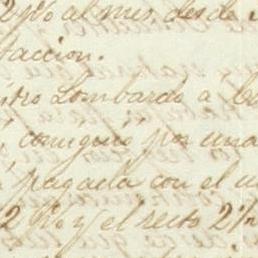 2 p% al mes, desde
faccion.
Lombardo á
consiguió por una
pagada con el
2 p% y el resto 2 p%